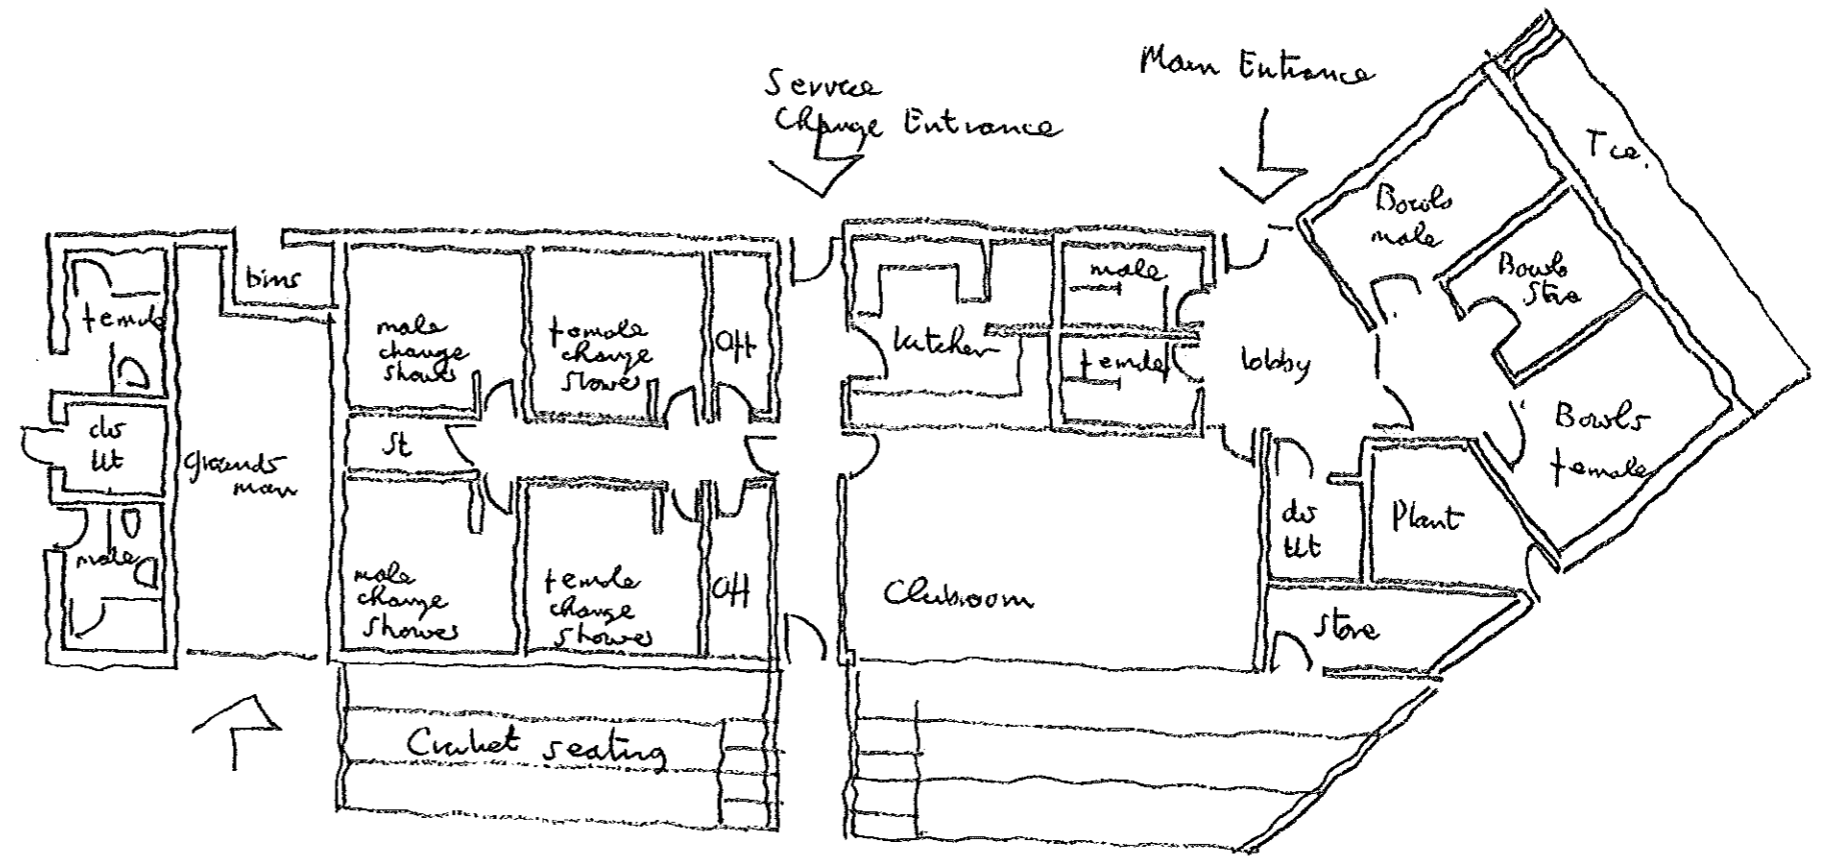 Service
Change Entrance
Main Entrance
Tce.
Bowls
male
Bowls
Store
Bowls
female
bins
female
male
change
shower
female
change
shower
Off
kitchen
male
female
lobby
dis
tlt
grounds
man
st
male
male
change
shower
female
change
shower
Off
Clubroom
dis
tlt
Plant
Store
Cricket seating